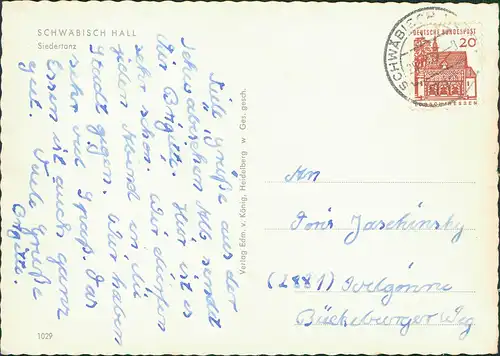 SCHWÄBISCH HALL
Siedertanz
Viele Grüße aus der
schwäbischen Alb sendet
dir Brigitte. Hier ist es
sehr schön. Wir dürfen
jeden Abend in die
Stadt gehen. Wir haben
sehr viel Spaß. Das
Essen ist auch ganz
gut. Viele Grüße
Brigitte.
1029
Verlag Edm. v. König, Heidelberg w Ges. gesch.
SCHWÄBISCH
DEUTSCHE BUNDESPOST
20
HESSEN
An
Doris Jaschinsky
(2881) Ovelgönne
Bückeburger Weg